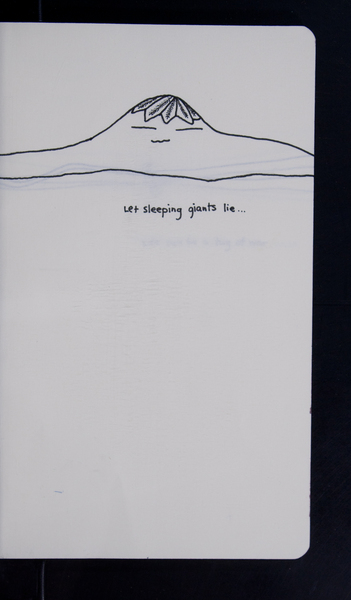 Let sleeping giants lie...